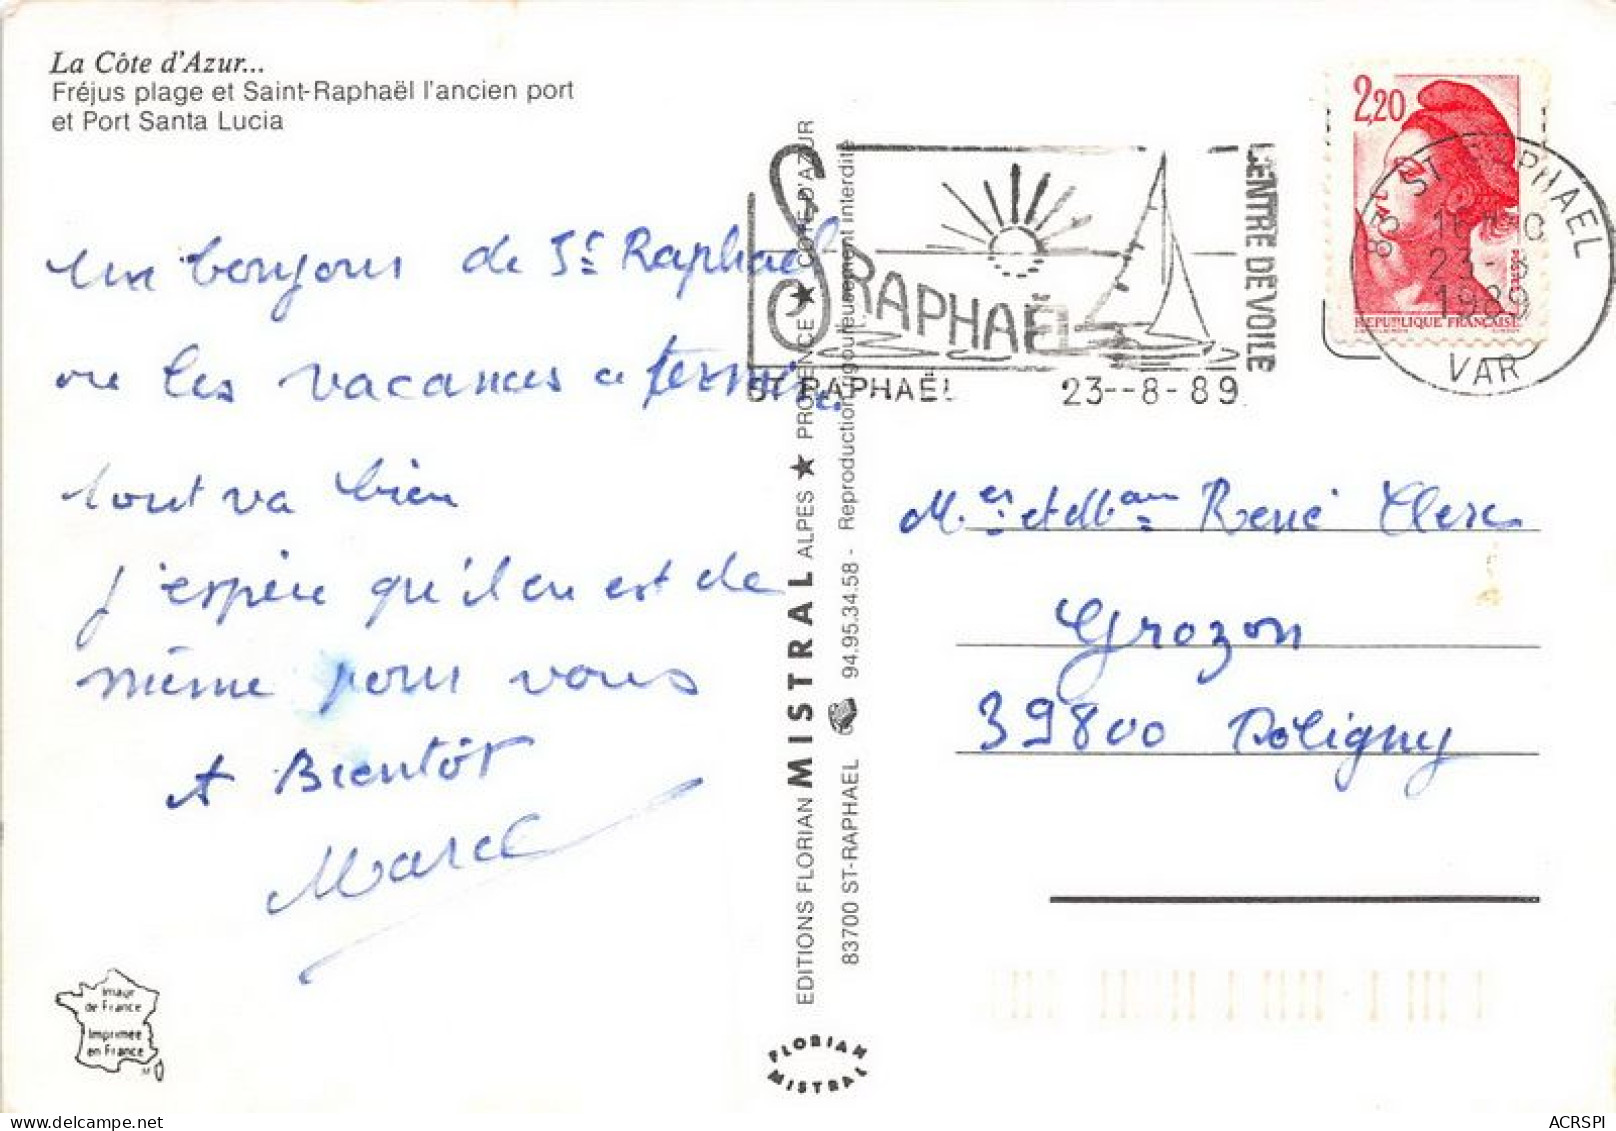 La Côte d'Azur...
Fréjus plage et Saint-Raphaël l'ancien port
et Port Santa Lucia
un bonjour de St Raphael
ou les vacances se termine
tout va bien
j'espère qu'il en est de
même pour vous
A Bientôt
Marcel
Image
de France
Imprimée
en France
EDITIONS FLORIAN MISTRAL ALPES ★ PROVENCE ★ COTE D'AZUR
83700 ST-RAPHAEL 94.95.34.58 - Reproduction rigoureusement interdite
FLORIAN
MISTRAL
ST RAPHAËL
CENTRE DE VOILE
ST RAPHAËL 23--8-89
2,20
POSTES
REPUBLIQUE FRANÇAISE
83 ST RAPHAEL
23-8
1989
VAR
Mer et Mam René Clerc
Grozon
39800 Poligny
ACRSPI